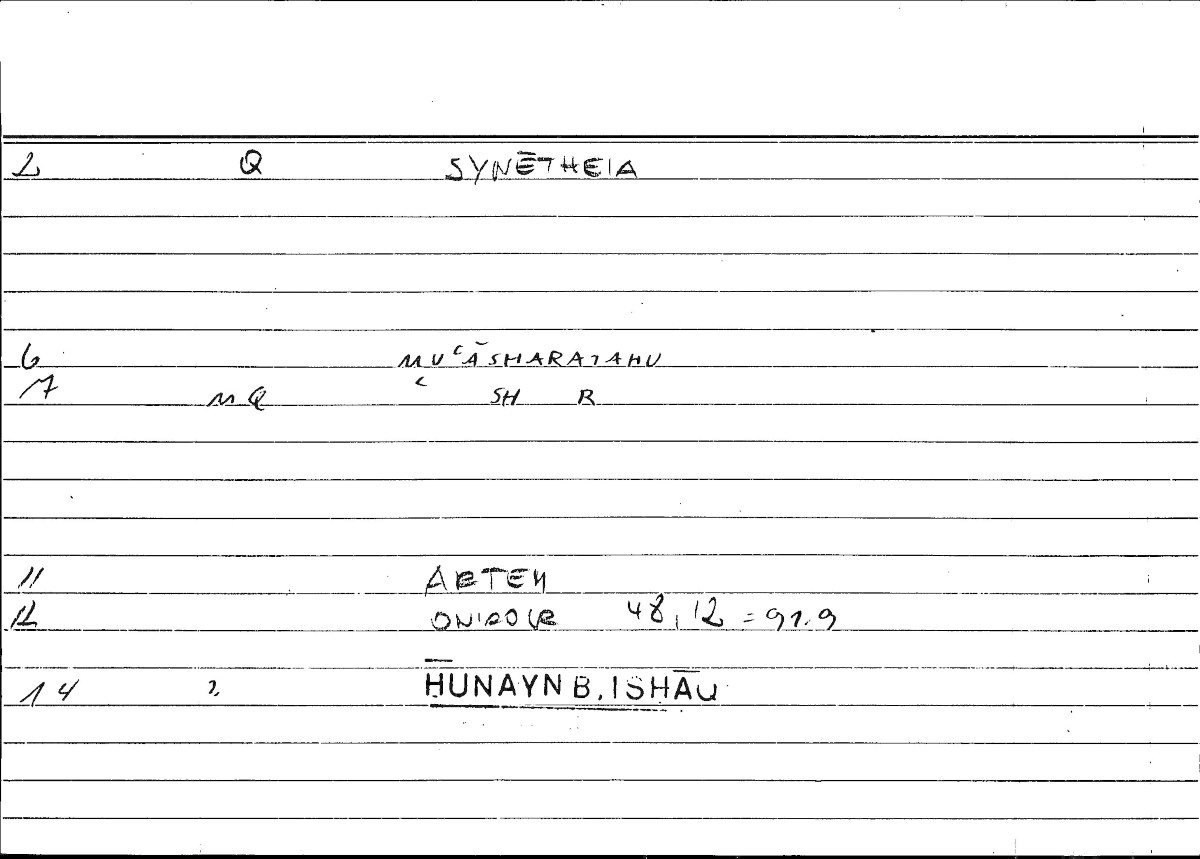 2 Q SYNĒTHEIA
6 MUʿĀSHARATAHU
7 MQ ʿ SH R
11 ARTEM
12 ONIROCR 48,12 = 91.9
14 2. ḤUNAYN B. ISHĀQ